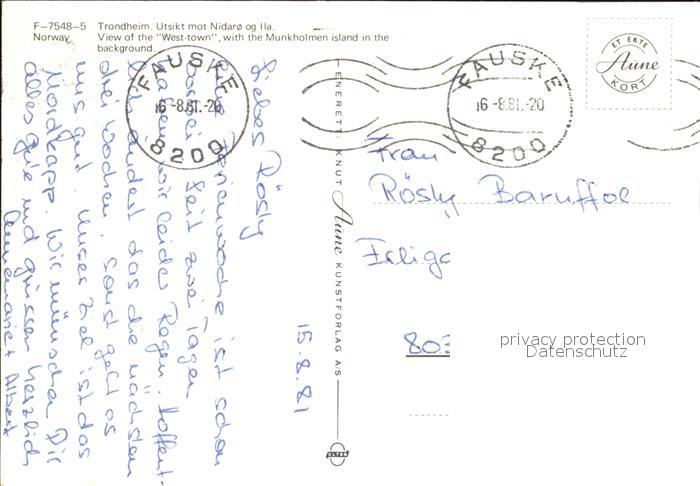 F-7548-5 Trondheim. Utsikt mot Nidarø og Ila.
Norway View of the "West-town", with the Munkholmen island in the
background.
FAUSKE
16-8.81.-20
8200
FAUSKE
16-8.81.-20
8200
ET EKTE
Aune
KORT
ENERETT: KNUT Aune KUNSTFORLAG A/S
ULTRA
15.8.81
Liebes Rösly
Eine Ferienwoche ist schon
vorbei. Seit zwei Tagen
haben wir leider Regen. Hoffent-
lich ändert das die nächsten
drei Wochen. Sonst geht es
uns gut. Unser Ziel ist das
Nordkapp. Wir wünschen Dir
alles gute und grüssen herzlich
Annemarie + Albert
Frau
Rösly Baruffol
Erliga
803
privacy protection
Datenschutz